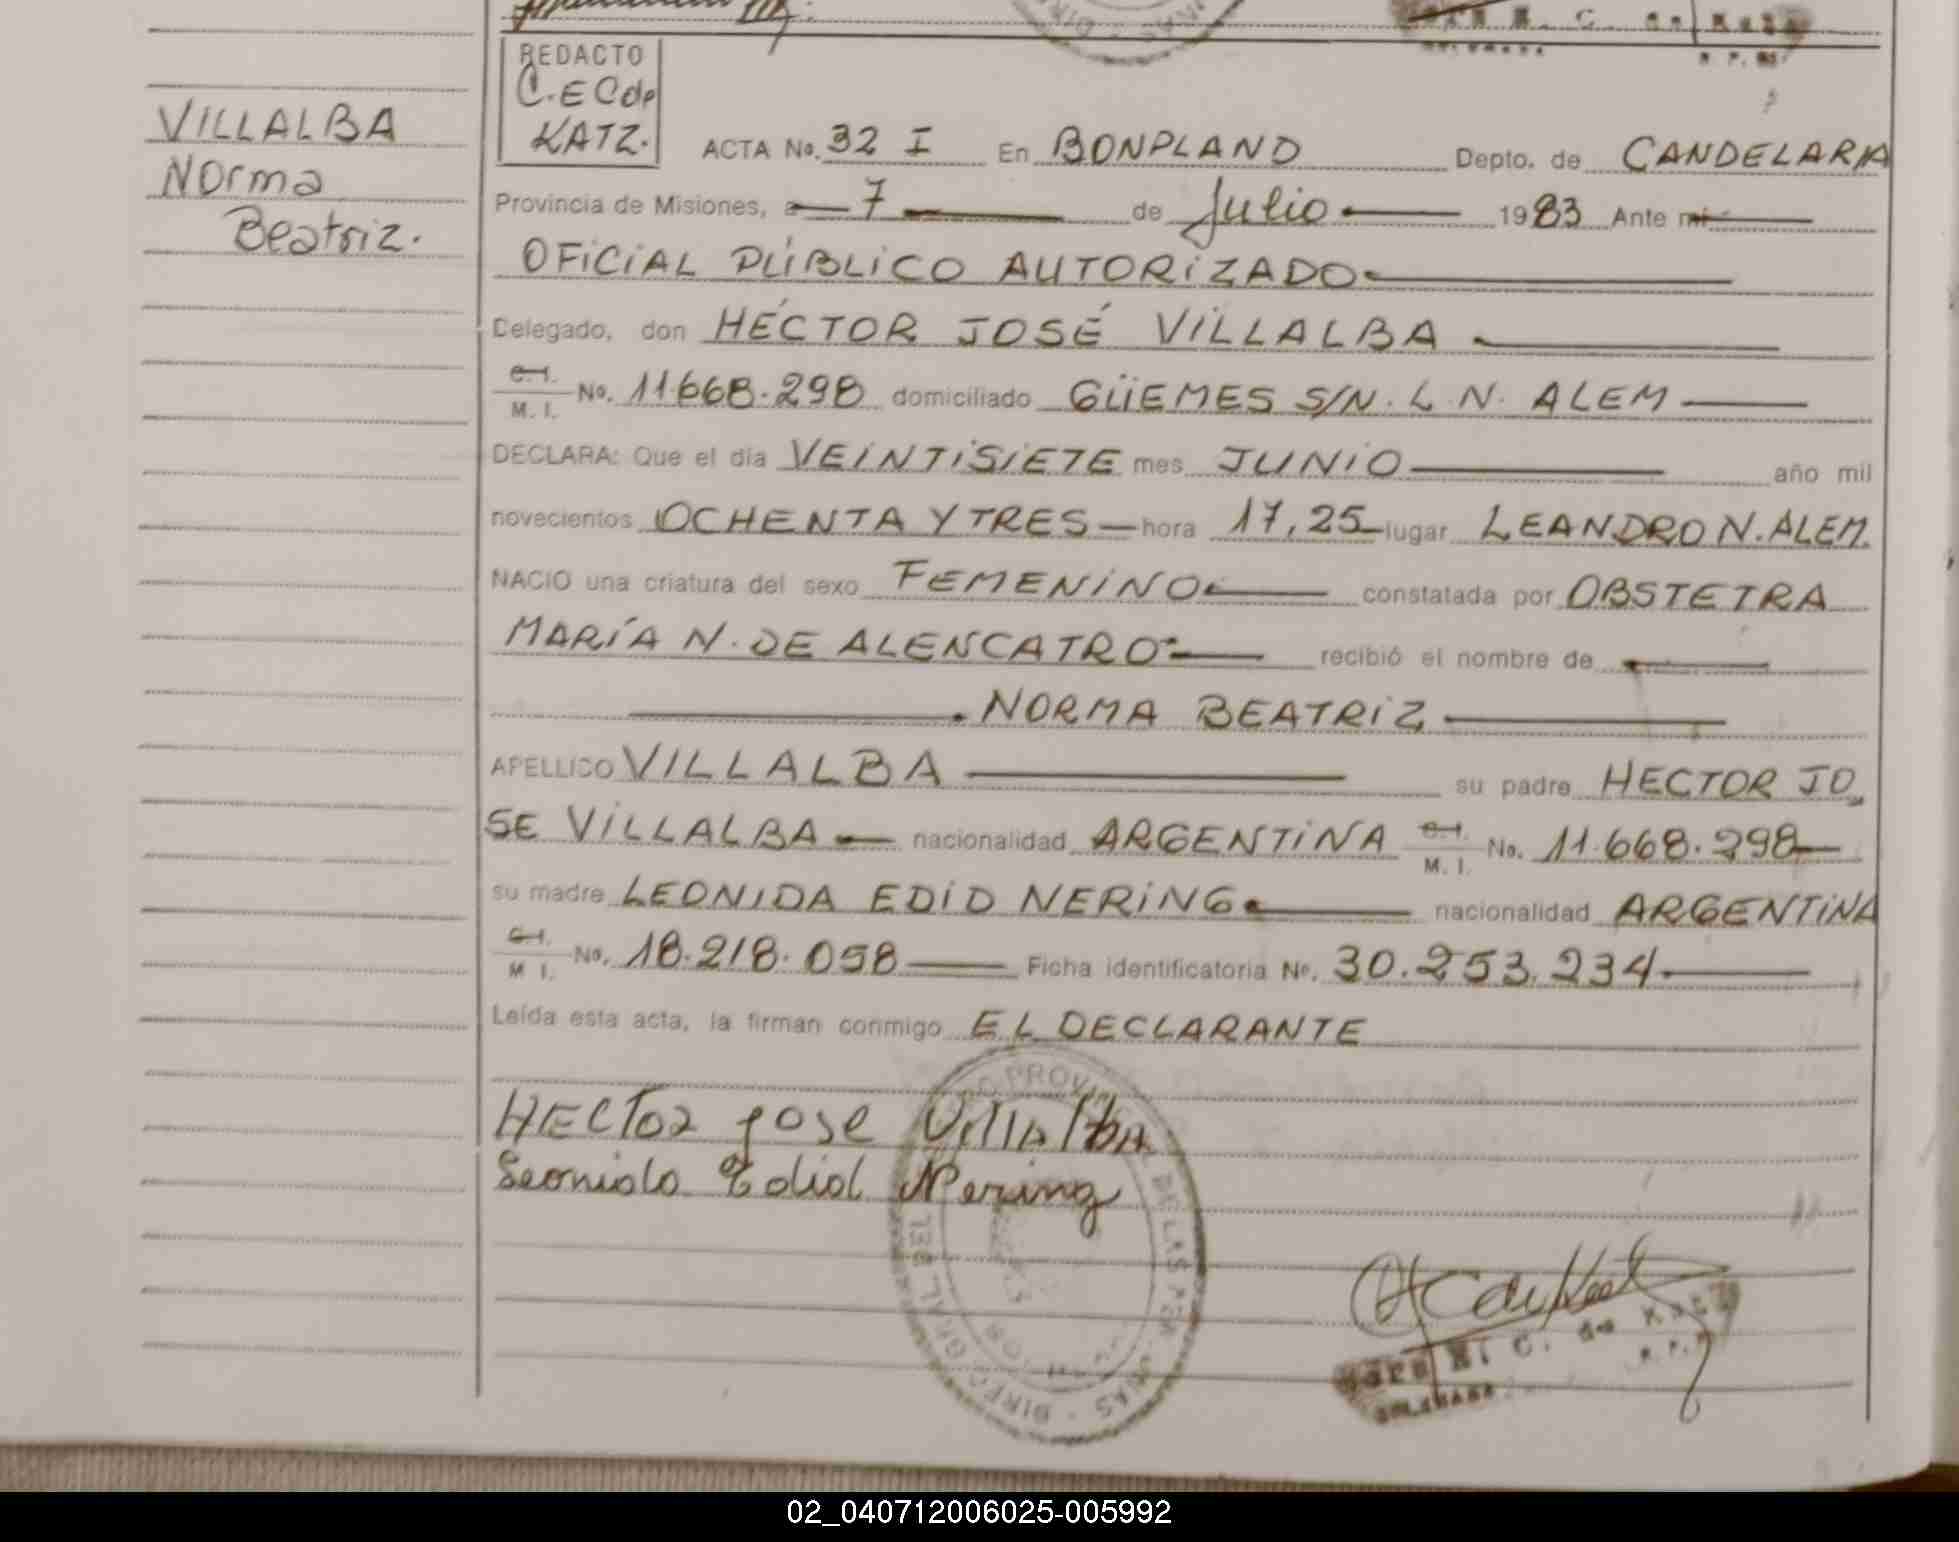 VILLALBA
Norma
Beatriz.
REDACTO
C.E Cde
KATZ.
ACTA No. 32 I En BONPLAND Depto. de CANDELARIA
Provincia de Misiones, a 7 de Julio 1983 Ante mi
OFICIAL PÚBLICO AUTORIZADO
Delegado, don HÉCTOR JOSÉ VILLALBA
C.I. M. I. No. 11.668.298 domiciliado GÜEMES S/N. L. N. ALEM
DECLARA: Que el día VEINTISIETE mes JUNIO año mil
novecientos OCHENTA Y TRES hora 17,25 lugar LEANDRO N. ALEM.
NACIO una criatura del sexo FEMENINO constatada por OBSTETRA
MARÍA N. DE ALENCATRO recibió el nombre de
NORMA BEATRIZ
APELLIDO VILLALBA su padre HECTOR JO
SE VILLALBA nacionalidad ARGENTINA C.I. M. I. No. 11.668.298
su madre LEONIDA EDID NERING nacionalidad ARGENTINA
C.I. M I. No. 18.218.058 Ficha identificatoria Nº. 30.253.234
Leída esta acta, la firman conmigo EL DECLARANTE
HECTOR Jose Villalba
Leonida Edid Nering
C. de Katz
02_040712006025-005992